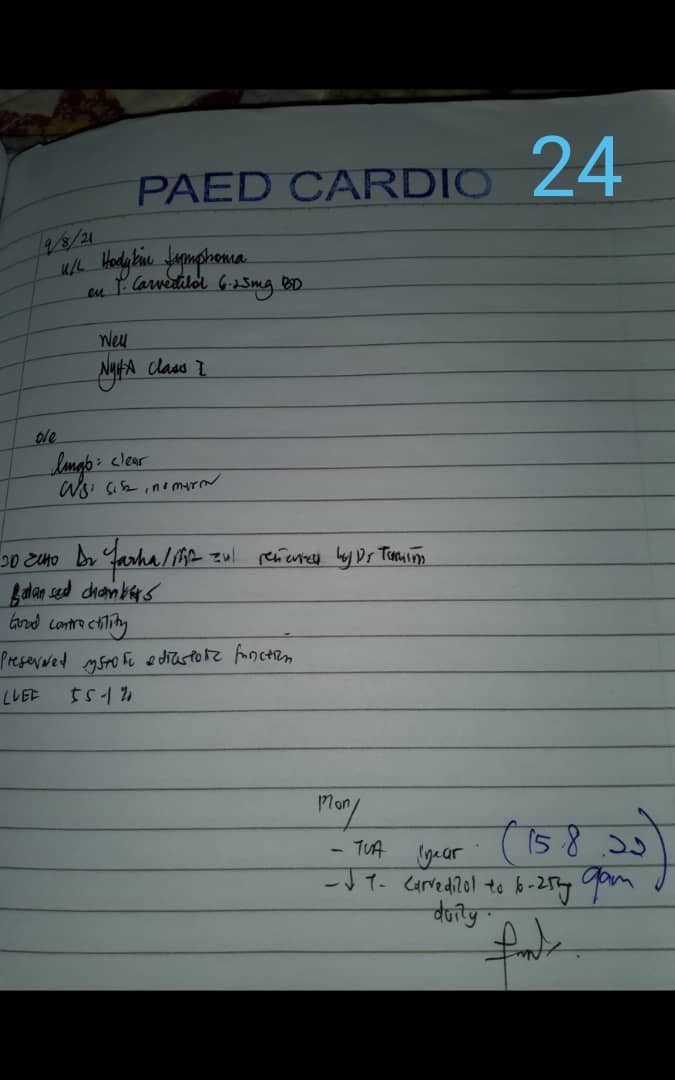 24
PAED CARDIO
9/8/21
u/L Hodgkin Lymphoma
on T. Carvedilol 6.25mg BD
Well
NYHA class I
o/e
lungs: clear
CVS: S1S2, no murmur
2D Echo Dr Farha / Zul reviewed by Dr
Balansed chambers
Good contractility
Preserved systolic & diastolic function
LVEF 55.1%
Plan/
- TCA 1 year (15.8.22)
- ↓ T. Carvedilol to 6.25mg 9am
daily.